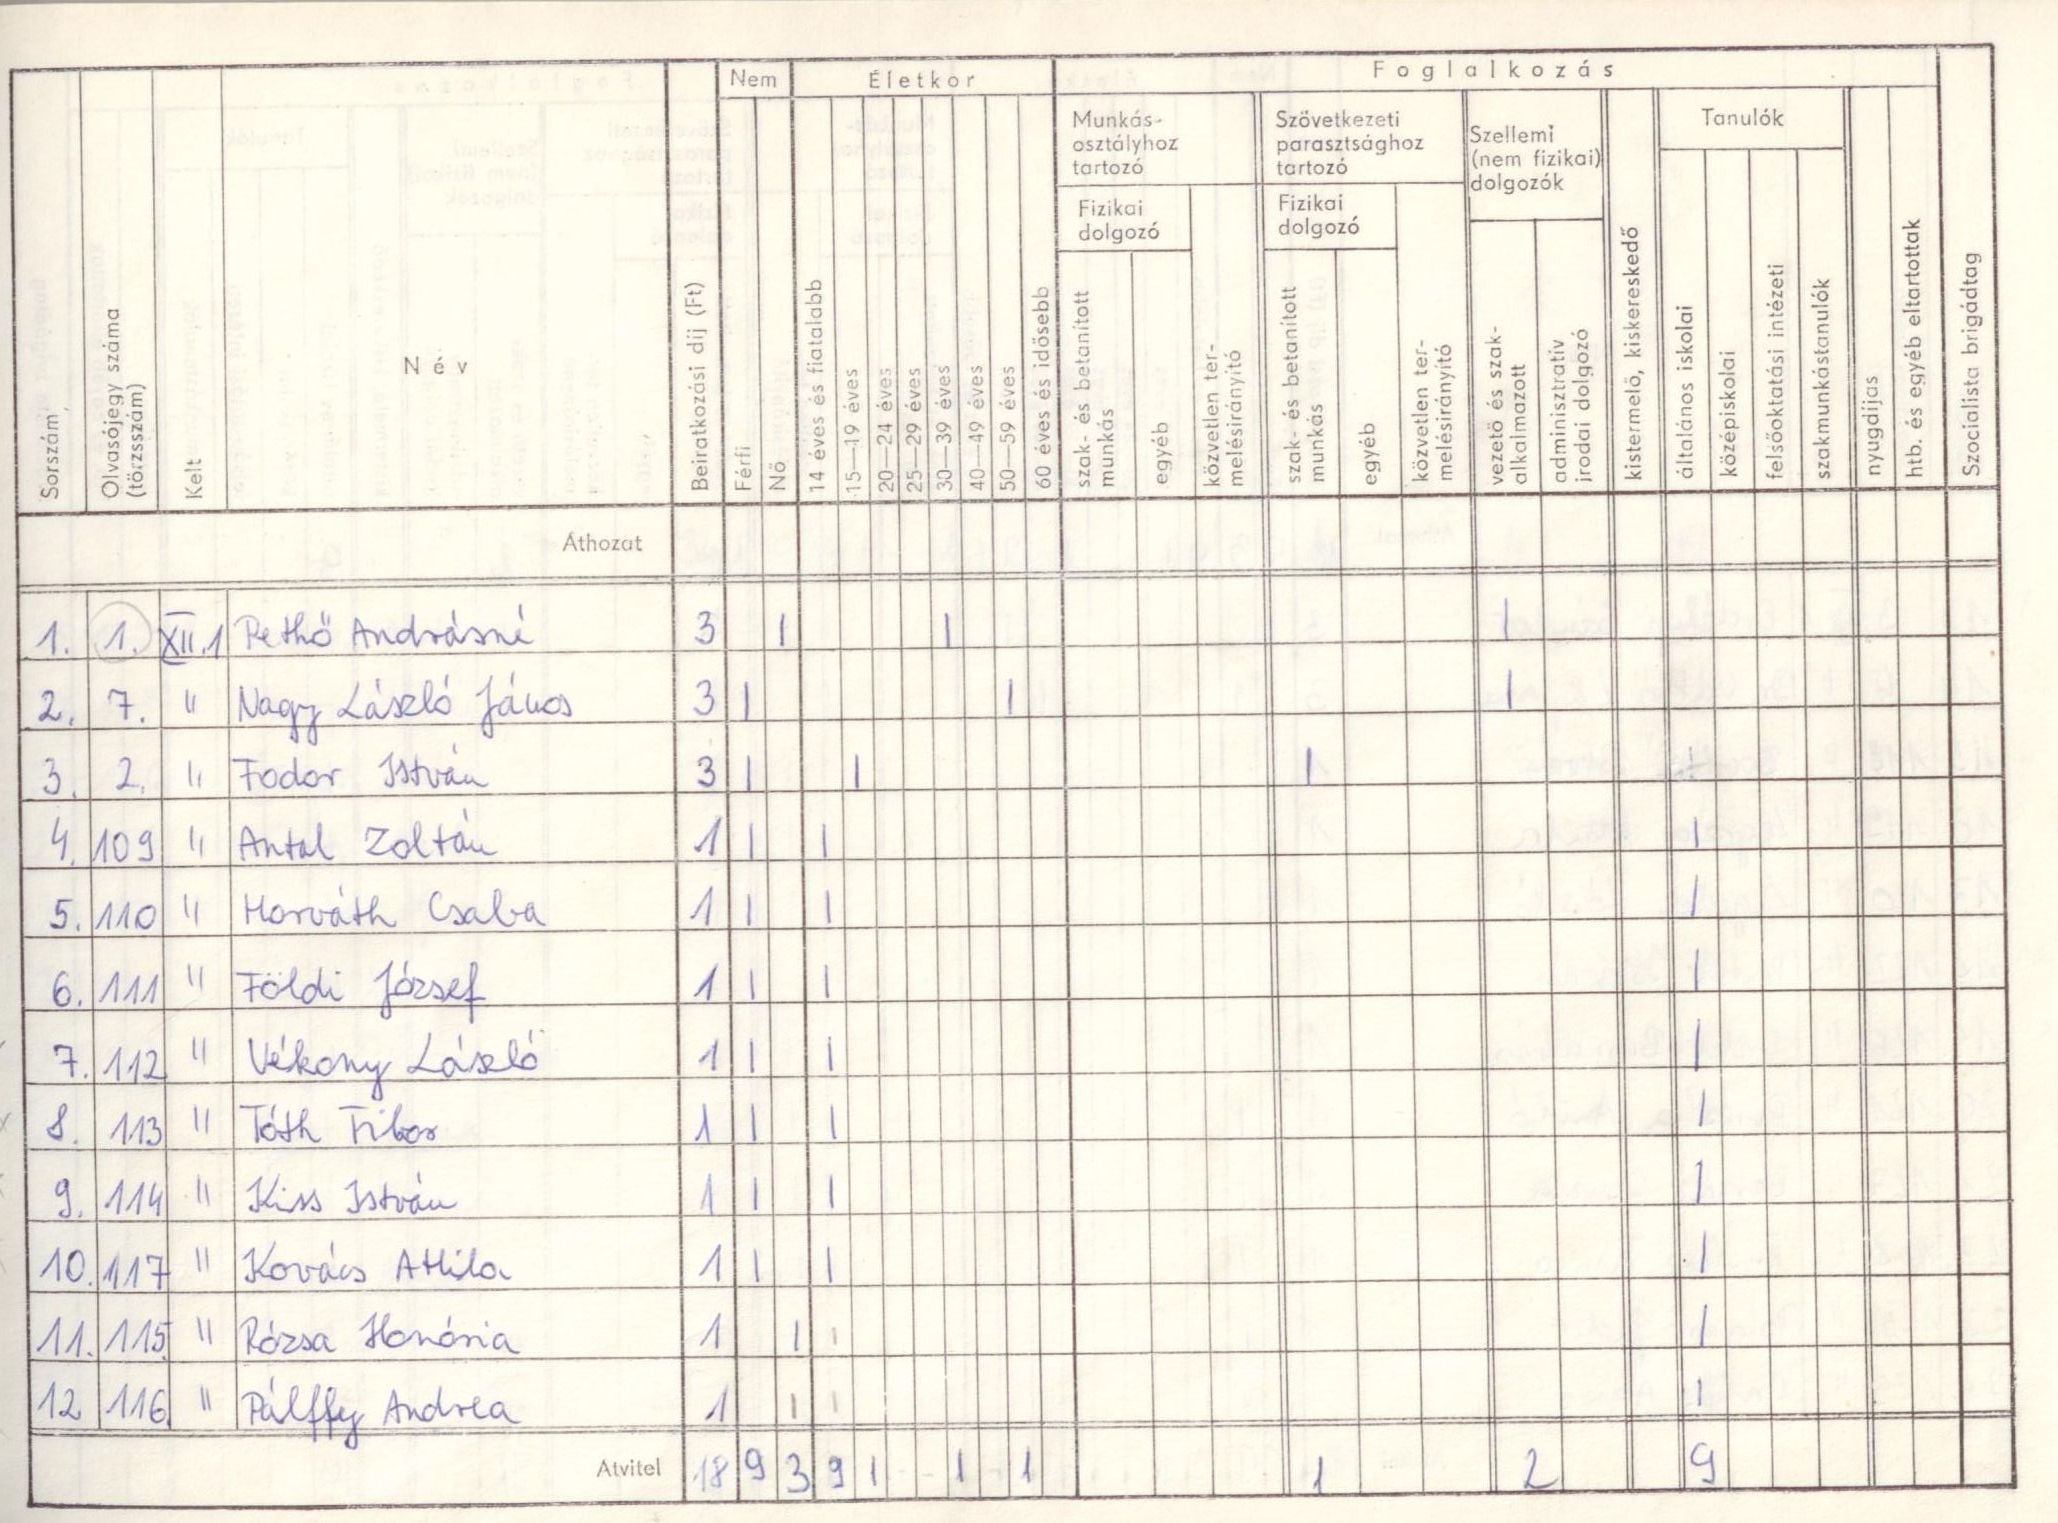 Nem Életkor Foglalkozás
Munkás-
osztályhoz
tartozó
Szövetkezeti
parasztsághoz
tartozó
Szellemi
(nem fizikai)
dolgozók
Tanulók
Fizikai
dolgozó
Fizikai
dolgozó
Sorszám
Olvasójegy száma
(törzsszám)
Kelt
Név
Beiratkozási díj (Ft)
Férfi
Nő
14 éves és fiatalabb
15—19 éves
20—24 éves
25—29 éves
30—39 éves
40—49 éves
50—59 éves
60 éves és idősebb
szak- és betanított
munkás
egyéb
közvetlen ter-
melésirányító
szak- és betanított
munkás
egyéb
közvetlen ter-
melésirányító
vezető és szak-
alkalmazott
adminisztratív
irodai dolgozó
kistermelő, kiskereskedő
általános iskolai
középiskolai
felsőoktatási intézeti
szakmunkástanulók
nyugdíjas
htb. és egyéb eltartottak
Szocialista brigádtag
Áthozat
1. 1. XII.1 Pethő Andrásné 3 1 1 1
2. 7. " Nagy László János 3 1 1 1
3. 2. " Fodor István 3 1 1 1
4. 109 " Antal Zoltán 1 1 1 1
5. 110 " Horváth Csaba 1 1 1 1
6. 111 " Földi József 1 1 1 1
7. 112 " Vékony László 1 1 1 1
8. 113 " Tóth Tibor 1 1 1 1
9. 114 " Kiss István 1 1 1 1
10. 117 " Kovács Attila 1 1 1 1
11. 115 " Rózsa Honória 1 1 1 1
12 116 " Pálffy Andrea 1 1 1 1
Átvitel 18 9 3 9 1 - - 1 - 1 1 2 9